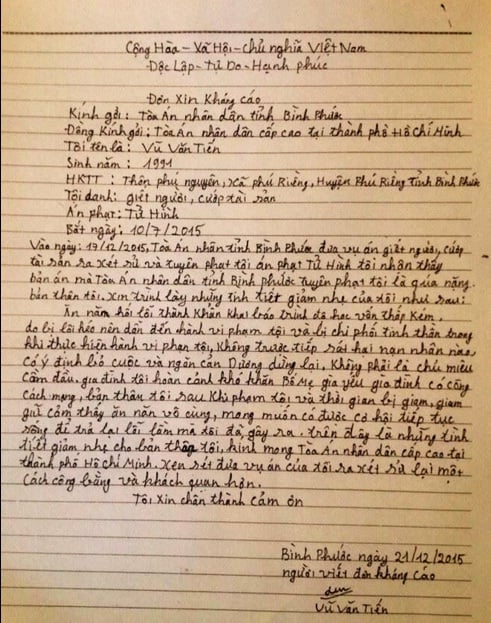 Cộng Hòa - Xã Hội - Chủ nghĩa Việt Nam
Độc Lập - Tự Do - Hạnh phúc
Đơn Xin Kháng cáo
Kính gởi: Tòa Án nhân dân tỉnh Bình Phước
Đồng Kính gởi: Tòa Án nhân dân cấp cao tại thành phố Hồ Chí Minh
Tôi tên là: Vũ Văn Tiến
Sinh năm: 1991
HKTT: Thôn phú nguyên, xã phú Riềng, Huyện Phú Riềng tỉnh Bình Phước
Tội danh: giết người, cướp tài sản
Án phạt: Tử Hình
Bắt ngày: 10/7/2015
Vào ngày: 17/12/2015, Tòa Án nhân tỉnh Bình Phước đưa vụ án giết người, cướp
tài sản ra xét sử và tuyên phạt tôi án phạt Tử Hình tôi nhận thấy
bản án mà Tòa Án nhân dân tỉnh Bình phước tuyên phạt tôi là quá nặng.
bản thân tôi xin trình bày những tình tiết giảm nhẹ của tôi như sau:
Ăn năn hối lỗi thành Khẩn Khai báo trình độ học vấn thấp Kém.
do bị lôi kéo nên dẫn đến hành vi phạm tội và bị chi phối tinh thần trong
khi thực hiện hành vi phạm tội, Không trược tiếp sát hại nạn nhân nào
có ý định bỏ cuộc và ngăn cản Dương dừng lại, Không phải là chủ mưu
cầm đầu. gia đình tôi hoàn cảnh khó khăn Bố Mẹ già yếu gia đình có công
Cách mạng, bản thân tôi sau Khi phạm tội và thời gian bị giam, giam
giữ cảm thấy ăn năn vô cùng, mong muốn có được cơ hội tiếp tục
sống để trả lại lỗi lầm mà tôi đã gây ra. trên đây là những tình
tiết giảm nhẹ cho bản thân tôi, kính mong Tòa Án nhân dân cấp cao tại
thành phố Hồ Chí Minh. xem sét đưa vụ án của tôi ra xét sử lại một
Cách công bằng và khách quan hơn.
Tôi Xin chân thành cảm ơn
Bình Phước ngày 21/12/2015
người viết đơn kháng cáo
Vũ Văn Tiến